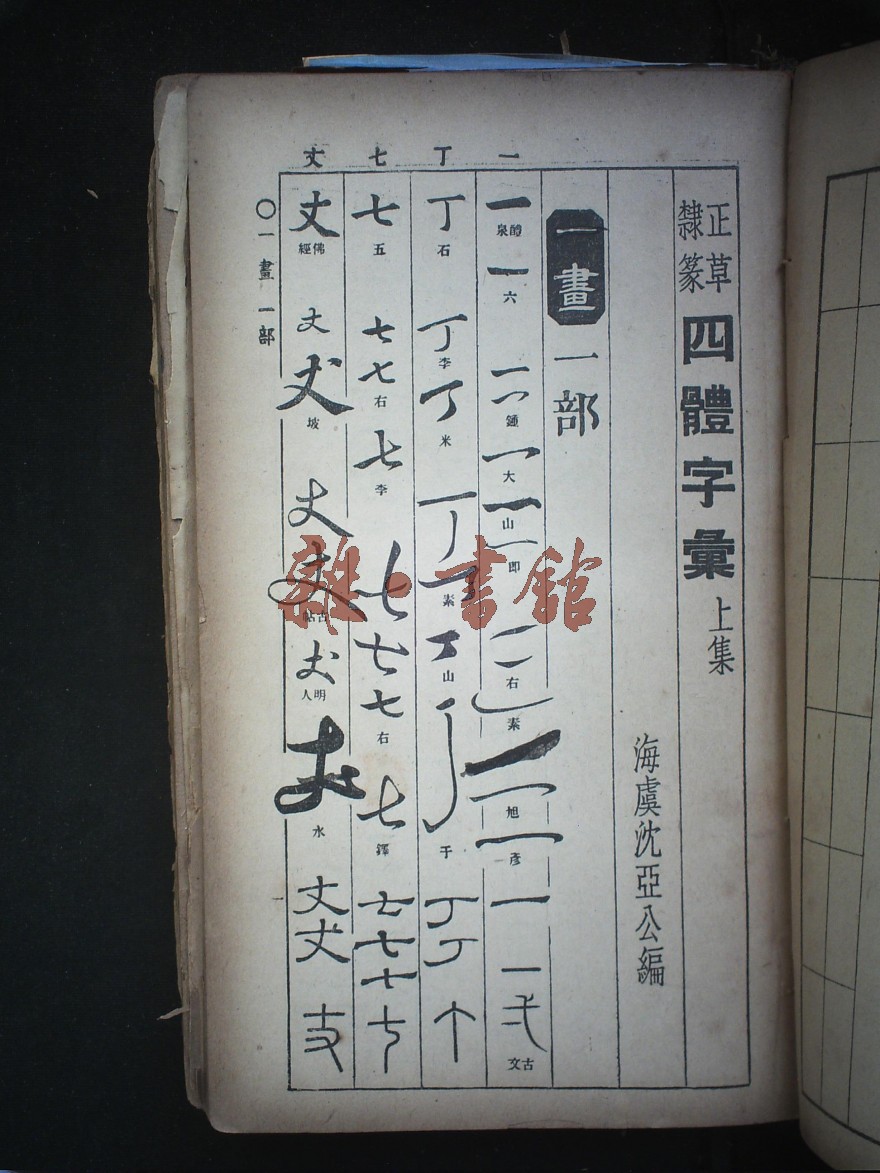 正草
隸篆
四體字彙 上集
海虞沈亞公編
一畫 一部
一 丁 七 丈
一 醴泉 一 六 一 一 鍾 一 大 一 山 一 即 一 右 一 素 一 一 旭 一 彥 一 一 弌 古文
丁 石 丁 李 丁 米 丁 丁 素 丁 山 丁 于 丁 丁 丁
七 五 七 七 右 七 李 七 七 七 右 七 鐸 七 七 七 七
丈 佛經 丈 丈 坡 丈 丈 古帖 丈 明人 丈 水 丈 丈 丈
〇一畫 一部
雜·書館